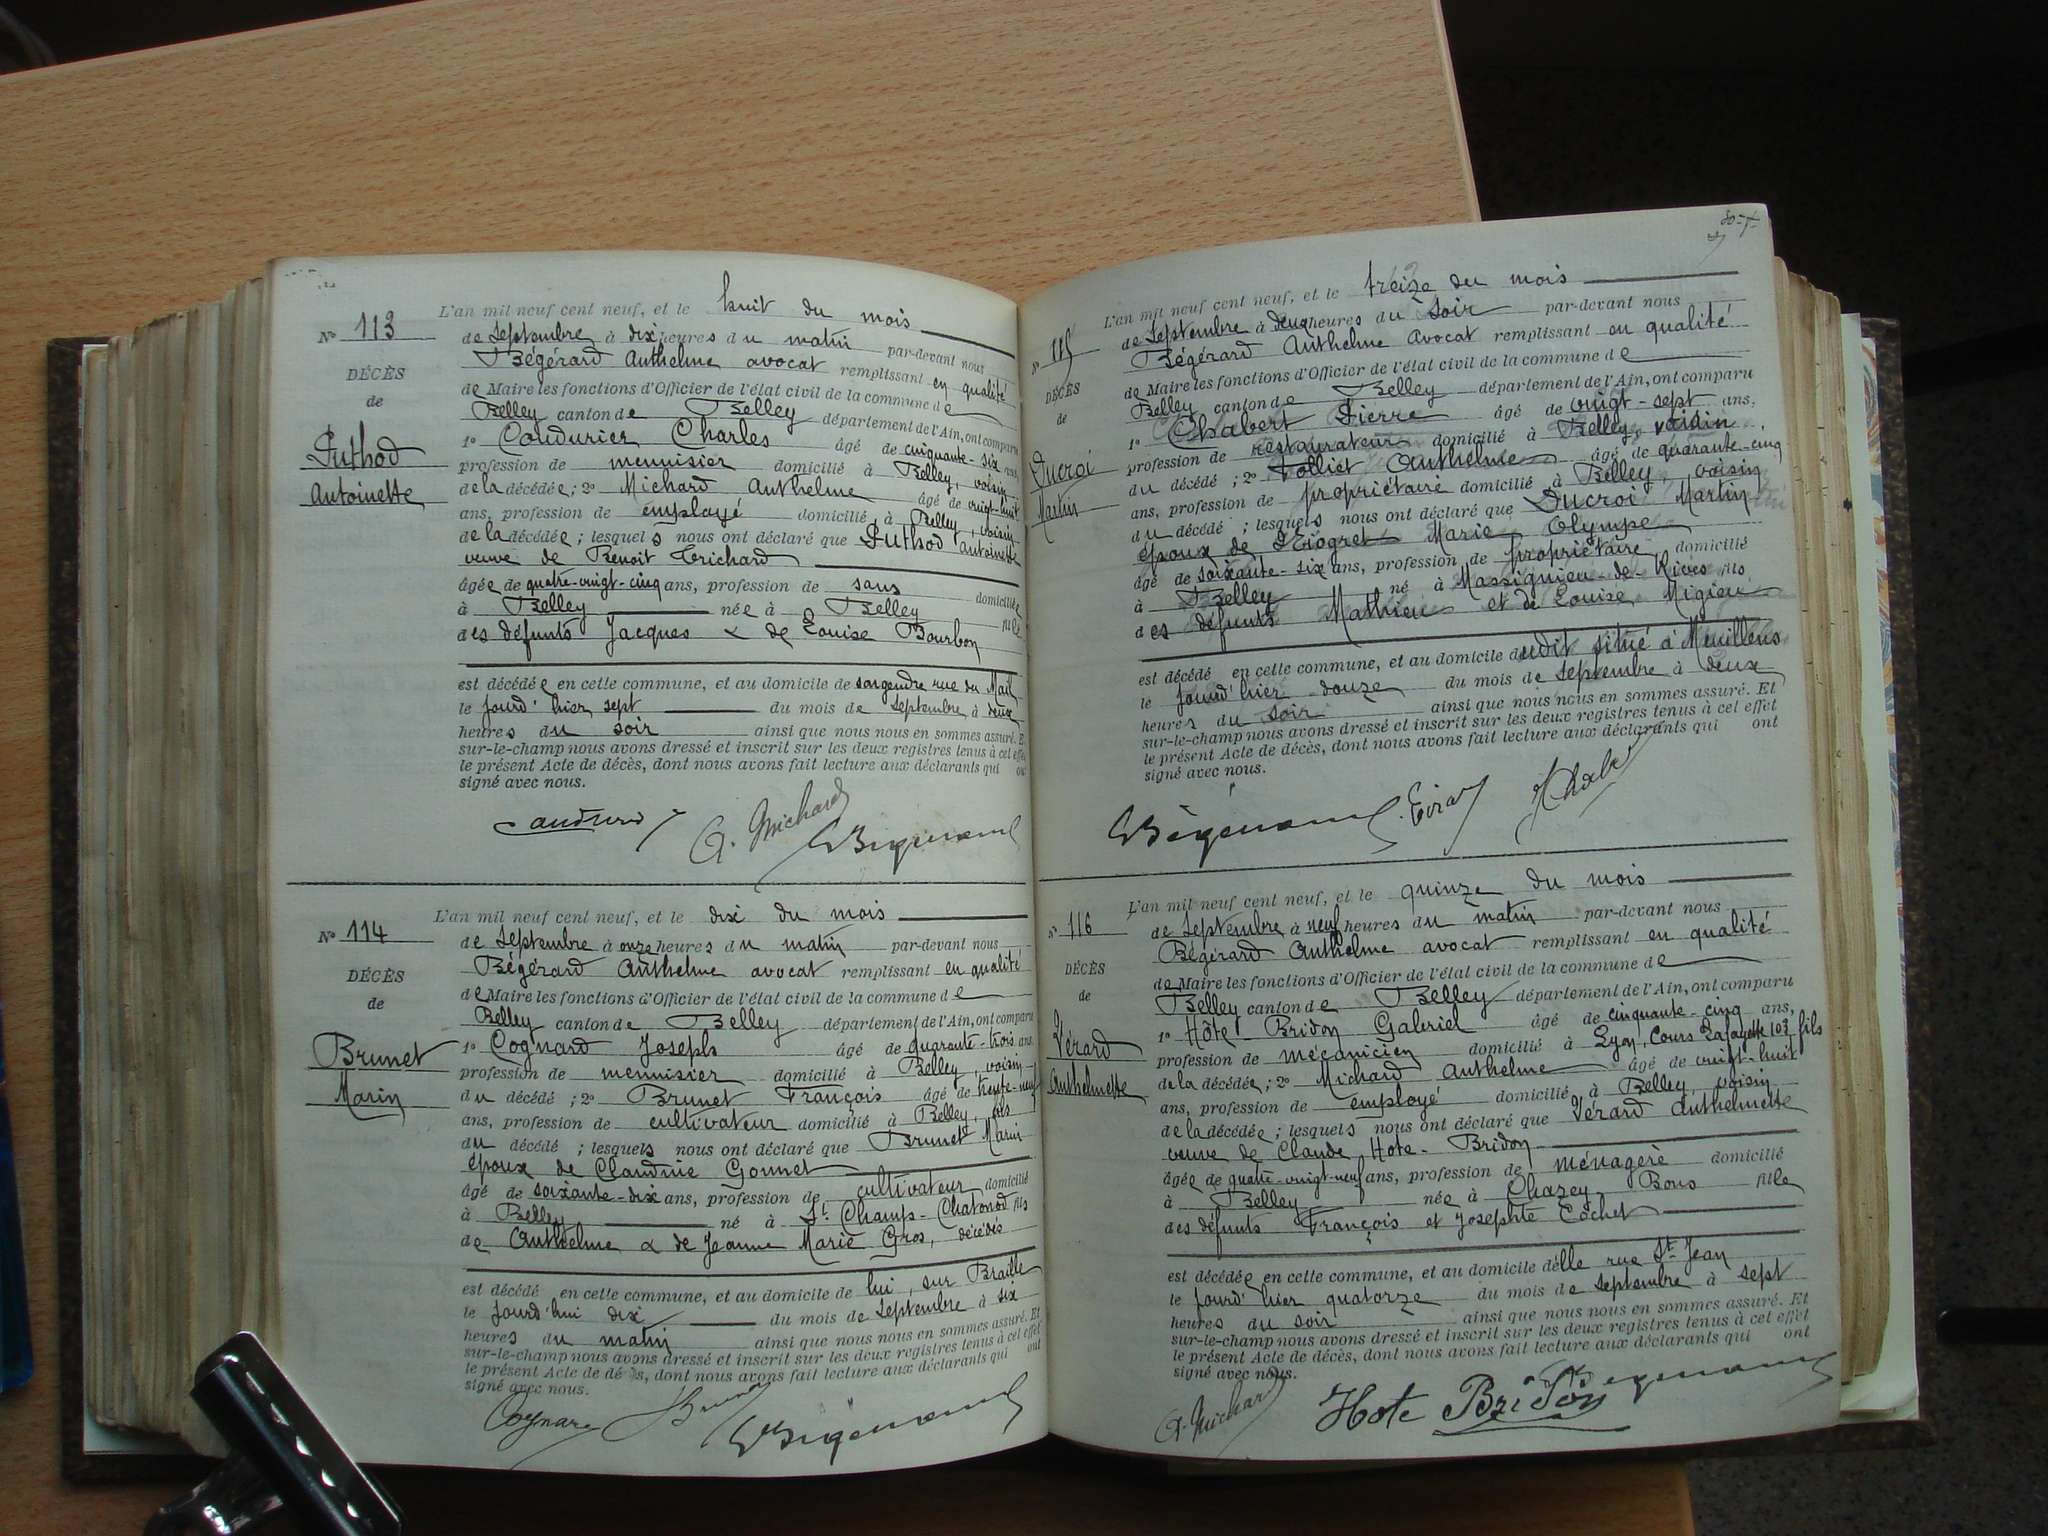 L'an mil neuf cent neuf, et le huit du mois
N° 113
de Septembre à dix heures du matin par-devant nous
Bégérard Anthelme avocat remplissant en qualité
DÉCÈS
de Maire les fonctions d'Officier de l'état civil de la commune de
de
Belley canton de Belley département de l'Ain, ont comparu
Puthod
1° Coudurier Charles âgé de cinquante-six ans,
profession de menuisier domicilié à Belley, voisin
Antoinette
de la décédée; 2° Michard Anthelme âgé de vingt-huit
ans, profession de employé domicilié à Belley, voisin
de la décédée; lesquels nous ont déclaré que Puthod Antoinette
veuve de Benoit Trichard
âgée de quatre-vingt-cinq ans, profession de sans domiciliée
à Belley née à Belley fille
des défunts Jacques & de Louise Bourbon
est décédée en cette commune, et au domicile de son gendre rue du Mail
le jourd'hier sept du mois de Septembre à deux
heures du soir ainsi que nous nous en sommes assuré. Et
sur-le-champ nous avons dressé et inscrit sur les deux registres tenus à cet effet
le présent Acte de décès, dont nous avons fait lecture aux déclarants qui ont
signé avec nous.
A. Michard
L'an mil neuf cent neuf, et le dix du mois
N° 114
de Septembre à onze heures du matin par-devant nous
Bégérard Anthelme avocat remplissant en qualité
DÉCÈS
de Maire les fonctions d'Officier de l'état civil de la commune de
de
Belley canton de Belley département de l'Ain, ont comparu
Brunet
1° Cognard Joseph âgé de quarante-trois ans
profession de menuisier domicilié à Belley, voisin
Marin
du décédé; 2° Brunet François âgé de trente-neuf
ans, profession de cultivateur domicilié à Belley, fils
du décédé; lesquels nous ont déclaré que Brunet Marin
époux de Claudine Gonnet
âgé de soixante-dix ans, profession de cultivateur domicilié
à Belley né à St. Champ-Chatonod fils
de Anthelme & de Jeanne Marie Gros, décédés
est décédé en cette commune, et au domicile de lui, sur Braille
le jourd'hui dix du mois de Septembre à six
heures du matin ainsi que nous nous en sommes assuré. Et
sur-le-champ nous avons dressé et inscrit sur les deux registres tenus à cet effet
le présent Acte de décès, dont nous avons fait lecture aux déclarants qui ont
signé avec nous.
Cognard Brunet Bégérard
L'an mil neuf cent neuf, et le treize du mois
N° 115
de Septembre à deux heures du soir par-devant nous
Bégérard Anthelme avocat remplissant en qualité
DÉCÈS
de Maire les fonctions d'Officier de l'état civil de la commune de
de
Belley canton de Belley département de l'Ain, ont comparu
1° Chabert Pierre âgé de vingt-sept ans,
Ducroi
profession de restaurateur domicilié à Belley, voisin
du décédé; 2° Folliet Anthelme âgé de quarante-cinq
Martin
ans, profession de propriétaire domicilié à Belley, voisin
du décédé; lesquels nous ont déclaré que Ducroi Martin
époux de Marie Olympe
âgé de soixante-six ans, profession de propriétaire domicilié
à Belley né à Massignieu-de-Rives fils
des défunts Mathieu et de Louise Migieu
est décédé en cette commune, et au domicile dudit situé à Meuillens
le jourd'hier douze du mois de Septembre à deux
heures du soir ainsi que nous nous en sommes assuré. Et
sur-le-champ nous avons dressé et inscrit sur les deux registres tenus à cet effet
le présent Acte de décès, dont nous avons fait lecture aux déclarants qui ont
signé avec nous.
L'an mil neuf cent neuf, et le quinze du mois
N° 116
de Septembre à neuf heures du matin par-devant nous
Bégérard Anthelme avocat remplissant en qualité
DÉCÈS
de Maire les fonctions d'Officier de l'état civil de la commune de
de
Belley canton de Belley département de l'Ain, ont comparu
1° Hôte-Bridon Gabriel âgé de cinquante-cinq ans,
Vérard
profession de mécanicien domicilié à Lyon, Cours Lafayette 103, fils
Anthelmette
de la décédée; 2° Michard Anthelme âgé de vingt-huit
ans, profession de employé domicilié à Belley, voisin
de la décédée; lesquels nous ont déclaré que Vérard Anthelmette
veuve de Claude Hote-Bridon
âgée de quatre-vingt-neuf ans, profession de ménagère domicilié
à Belley née à Chazey Bons fille
des défunts François et Josephte Cochet
est décédée en cette commune, et au domicile d'elle rue St. Jean
le jourd'hier quatorze du mois de Septembre à sept
heures du soir ainsi que nous nous en sommes assuré. Et
sur-le-champ nous avons dressé et inscrit sur les deux registres tenus à cet effet
le présent Acte de décès, dont nous avons fait lecture aux déclarants qui ont
signé avec nous.
A. Michard Hote Bridon Bégérard